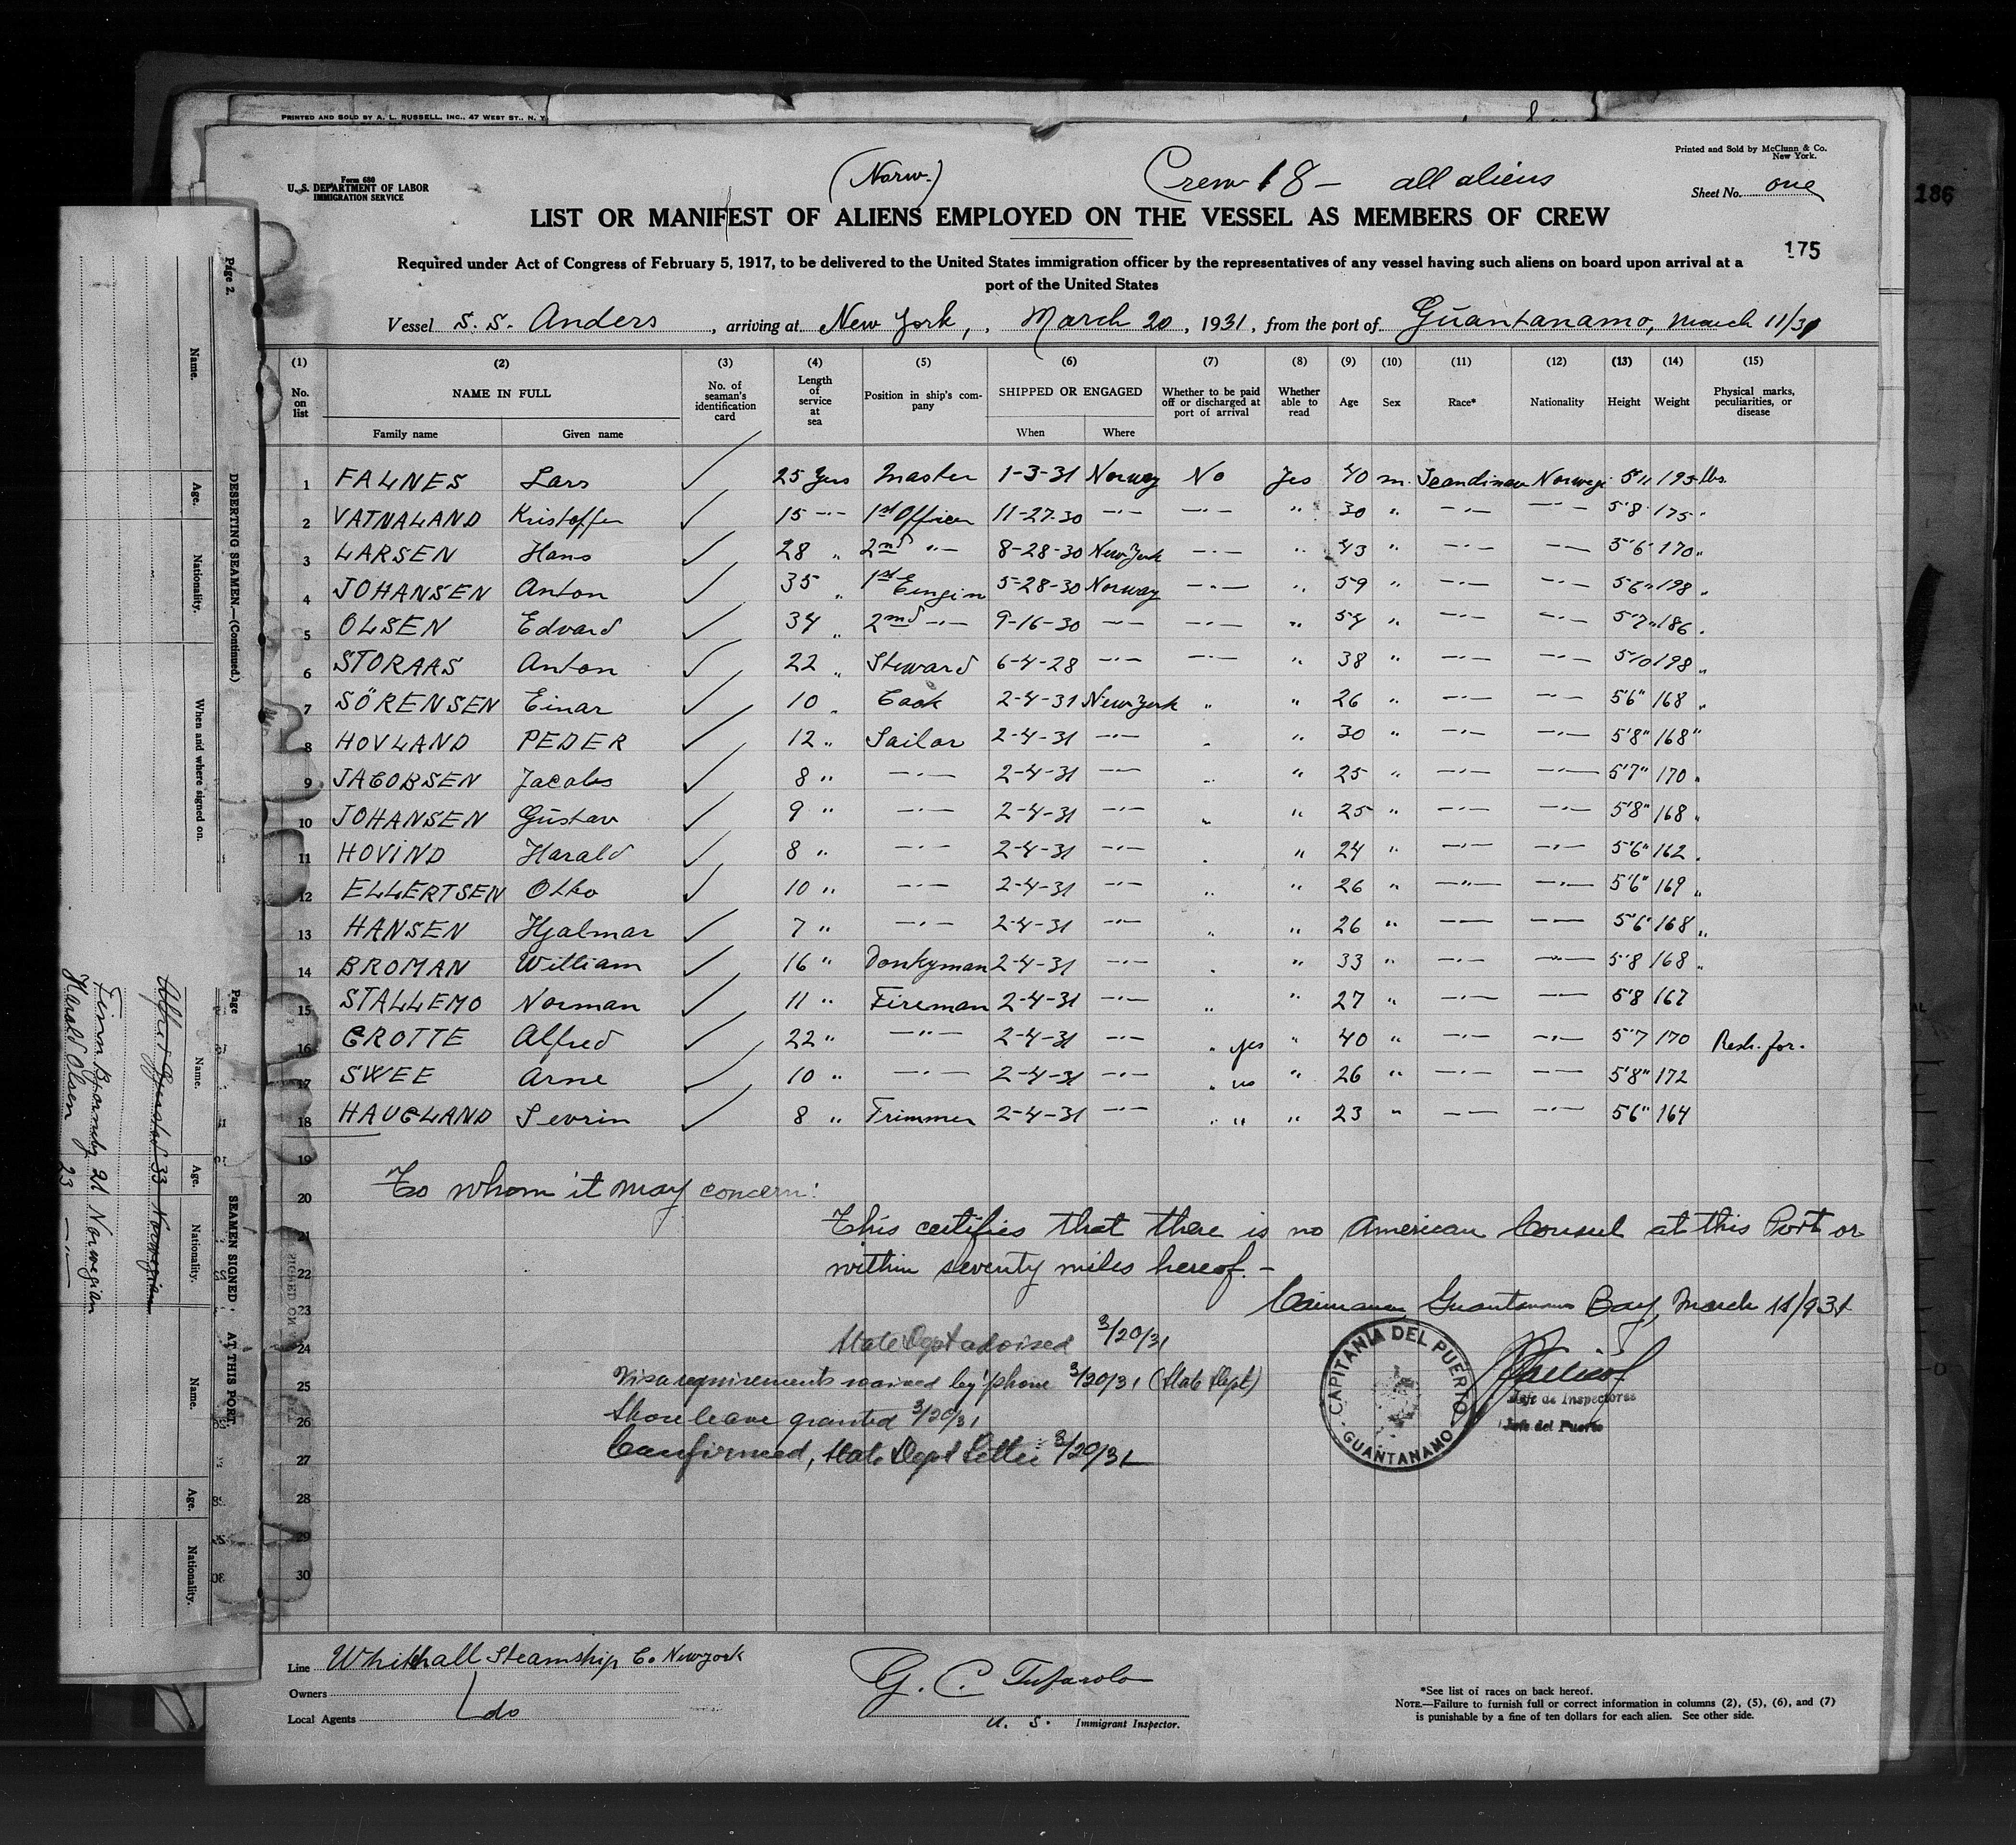 PRINTED AND SOLD BY A. L. RUSSELL, INC., 47 WEST ST., N. Y.
Printed and Sold by McClunn & Co.
New York.
Form 680
U. S. DEPARTMENT OF LABOR
IMMIGRATION SERVICE
(Norw.)
Crew 18 - all aliens
Sheet No. one
186
LIST OR MANIFEST OF ALIENS EMPLOYED ON THE VESSEL AS MEMBERS OF CREW
175
Required under Act of Congress of February 5, 1917, to be delivered to the United States immigration officer by the representatives of any vessel having such aliens on board upon arrival at a
port of the United States
Vessel S. S. Anders, arriving at New York, March 20, 1931, from the port of Guantanamo, March 11/31
(1) (2) (3) (4) (5) (6) (7) (8) (9) (10) (11) (12) (13) (14) (15)
No. on list NAME IN FULL No. of seaman's identification card Length of service at sea Position in ship's company SHIPPED OR ENGAGED Whether to be paid off or discharged at port of arrival Whether able to read Age Sex Race* Nationality Height Weight Physical marks, peculiarities, or disease
Family name Given name When Where
1 FALNES Lars ✓ 25 Yers Master 1-3-31 Norway No Yes 40 m. Scandinav Norweg. 5'11 195 lbs.
2 VATNALAND Kristoffer ✓ 15 -"- 1st Officer 11-27-30 -"- -"- " 30 " -"- -"- 5'8 175 "
3 LARSEN Hans ✓ 28 " 2nd "- 8-28-30 New York -"- " 43 " -"- -"- 5'6 170 "
4 JOHANSEN Anton ✓ 35 " 1st Eengin 5-28-30 Norway -"- " 59 " -"- -"- 5'6" 198 "
5 OLSEN Edvard ✓ 34 " 2nd -"- 9-16-30 -"- -"- " 54 " -"- -"- 5'7" 186 "
6 STORAAS Anton ✓ 22 " Steward 6-4-28 -"- -"- " 38 " -"- -"- 5'10 198 "
7 SÖRENSEN Einar ✓ 10 " Cook 2-4-31 New York " " 26 " -"- -"- 5'6" 168 "
8 HOVLAND PEDER ✓ 12 " Sailor 2-4-31 -"- " " 30 " -"- -"- 5'8" 168 "
9 JACOBSEN Jacob ✓ 8 " -"- 2-4-31 -"- " " 25 " -"- -"- 5'7" 170 "
10 JOHANSEN Gustav ✓ 9 " -"- 2-4-31 -"- " " 25 " -"- -"- 5'8" 168 "
11 HOVIND Harald ✓ 8 " -"- 2-4-31 -"- " " 24 " -"- -"- 5'6" 162 "
12 ELLERTSEN Otto ✓ 10 " -"- 2-4-31 -"- " " 26 " -"- -"- 5'6" 169 "
13 HANSEN Hjalmar ✓ 7 " -"- 2-4-31 -"- " " 26 " -"- -"- 5'6" 168 "
14 BROMAN William ✓ 16 " Donkyman 2-4-31 -"- " " 33 " -"- -"- 5'8 168 "
15 STALLEMO Norman ✓ 11 " Fireman 2-4-31 -"- " " 27 " -"- -"- 5'8 167
16 GROTTE Alfred ✓ 22 " -"- 2-4-31 -"- " yes " 40 " -"- -"- 5'7 170 Resh. for.
17 SWEE Arne ✓ 10 " -"- 2-4-31 -"- " no " 26 " -"- -"- 5'8" 172
18 HAUGLAND Sevrin ✓ 8 " Trimmer 2-4-31 -"- " " " 23 " -"- -"- 5'6" 164
19
20 To whom it may concern:
21 This certifies that there is no American Consul at this Port or
22 within seventy miles hereof. -
23 Caimanera Guantanamo Bay, March 11/931
24 State Dept advised 3/20/31
25 Visa requirements waived by 'phone 3/20/31 (State Dept)
26 Shore leave granted 3/20/31
27 Confirmed, State Dept Letter 3/20/31
28
29
30
CAPITANIA DEL PUERTO
GUANTANAMO
Jefe de Inspectores
Jefe del Puerto
Line Whitehall Steamship Co New York
Owners
Local Agents do
G. C. Tufarolo
U. S. Immigrant Inspector.
*See list of races on back hereof.
NOTE.—Failure to furnish full or correct information in columns (2), (5), (6), and (7)
is punishable by a fine of ten dollars for each alien. See other side.
Page 2.
DESERTING SEAMEN.—(Continued.)
Name. Age. Nationality. When and where signed on.
Page
SEAMEN SIGNED AT THIS PORT
Name. Age. Nationality. Name. Age. Nationality.
33 Norwegian
Finn Bjorneby 21 Norwegian
Harald Olsen 23 -"-
SIGNED ON